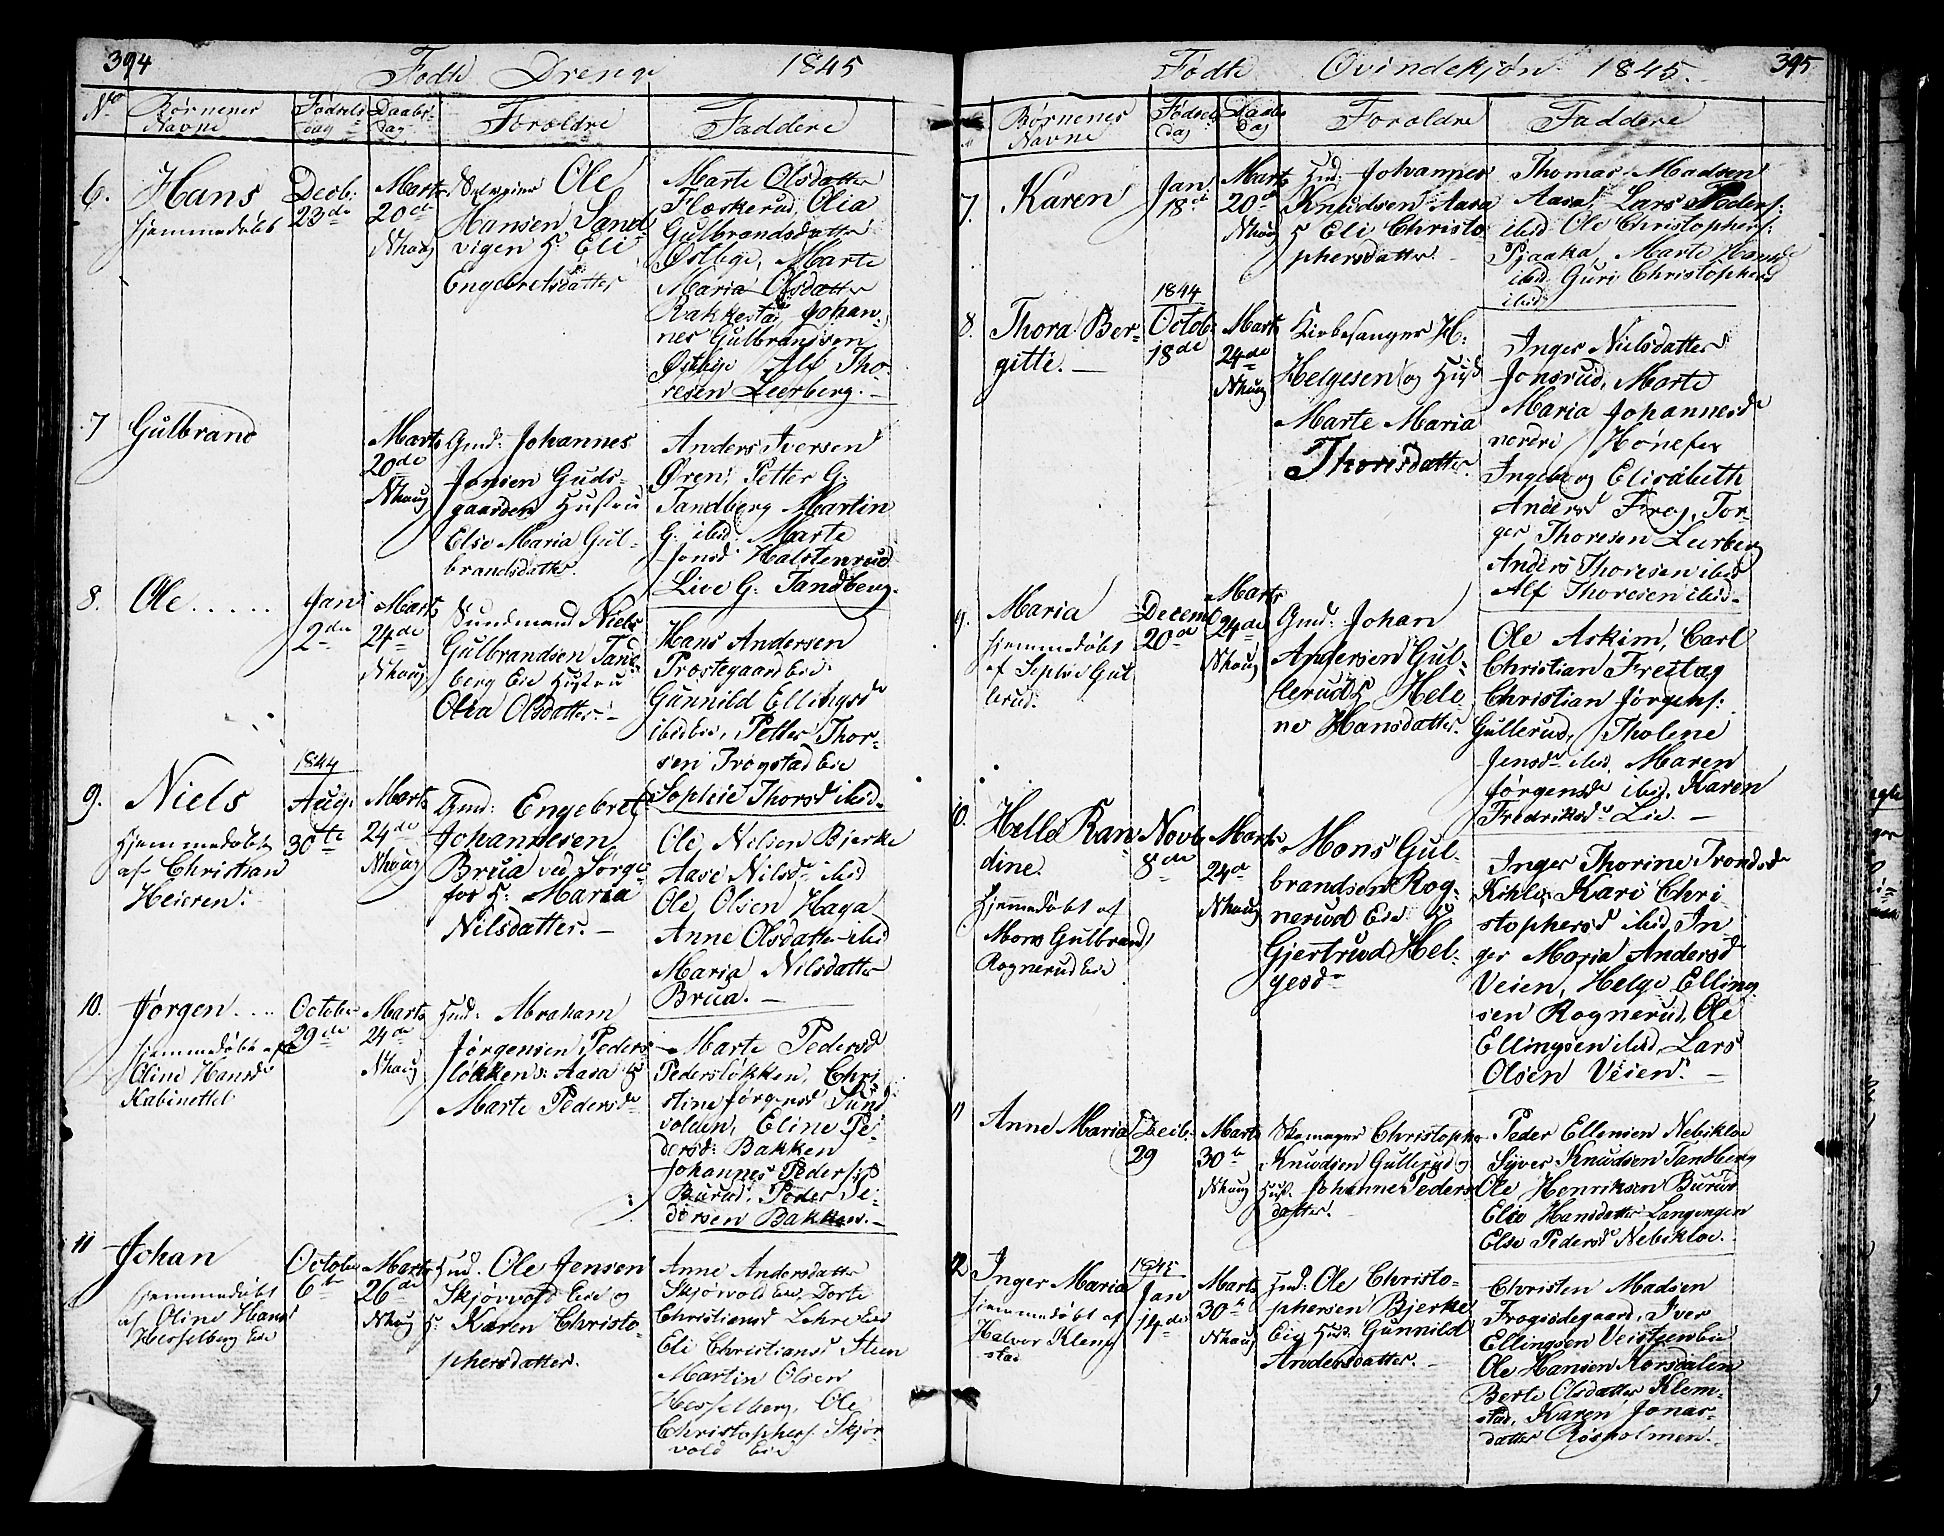 394
Fødte Drenge 1845
No
Børnenes Navne
Fødsels dag
Daabs dag
Forældre
Faddere
6.
Hans
hjemmedøbt
Decb:
23de
Marts
20de
Nhaug
Selveier Ole
Hansen Sand
vigen H. Eli
Engebretsdatter
Marte Olsdatter
Flæskerud, Olia
Gulbrandsdatter
Østbye, Marte
Maria Olsdatter
Rakkestad, Johan-
nes Gulbrandsen
Østbye, Alf Tho-
resen Leerberg. —
7
Gulbrand
Marts
20de
Nhaug
Gmd: Johannes
Jonsen Guds-
gaarden Hustru
Else Maria Gul-
brandsdatter.
Anders Iversen
Øren, Petter G.
Tandberg Martin
G. ibid. Marte
Jonsd Halstenrud
Live G: Tandberg.
8.
Ole.....
Jan:
2de
Marts
24de
Nhaug
Sundmand Niels
Gulbrandsen Tand-
berg Eie Hustru
Olia Olsdatter. —
Hans Andersen
Prostegaard Eie
Gunnild Ellingsd
ibid Eie, Petter Thor-
sen Frøgstad Eie
Sophie Thorsd ibid.
9.
Niels
Hjemmedøbt
af Christian
Heieren.
1844
Aug:
30te
Marts
24de
Nhaug
Gmd: Engebret
Johannesen
Brua ved Sørge-
fos H. Maria
Nilsdatter. —
Ole Nielsen Bjerke
Aase Nilsd ibid
Ole Olsen Haga
Anne Olsdatter ibid
Maria Nilsdatter
Brua. —
10.
Jørgen....
hjemmedøbt af
Oline Hansd
Kabinettet
October
29de
Marts
24de
Nhaug
Hmd: Abraham
Jørgensen Peders
løkken: Aasa H
Marte Pedersd
Marte Pedersd
Pedersløkken, Chri
stine Jørgensd Sund
volden, Eline Pe-
dersd: Bakken
Johannes Peders:
Burud, Peder Pe-
dersen Bakken. —
11
Johan
hjemmedøbt
af Oline Hans
Hesselberg Eie
October
6te
Marts
26de
Nhaug
Hmd. Ole Jensen
Skjørvold Eie og
H. Karen Christo-
phersdatter.
Anne Andersdatter
Skjørvold Eie, Dorte
Christiansd Lehre Eie
Eli Christiansd Steen
Martin Olsen
Hesselberg, Ole
Christophers. Skjør-
vold Eie
395
Fødte Qvindekjøn 1845.
Børnenes Navne
Fødsels dag
Daabs dag
Forældre
Faddere
7.
Karen
Jan.
18de
Marts
20de
Nhaug
Hmd: Johannes
Knudsen Aasa
H Eli Christo
phersdatter.
Thomas Madsen
Aasa, Lars Peders:
ibid Ole Christophers:
Pjaaka, Marte Hansd
ibid: Guri Christophersd
ibid
8.
Thora Ber-
gitte. —
1844
Octob:
18de
Marts
24de
Nhaug
Kirkesanger H:
Helgesen og Hust
Marte Maria
Thoresdatter.
Inger Nielsdatter
Jonsrud, Marte
Maria Johannesd
nordre Hønefos
Ingeborg Elisabeth
Andersd Frøg, Tor-
ger Thoresen Leerberg
Anders Thoresen ibid
Alf Thoresen ibid.
9.
Maria
hjemmedøbt
af Sophie Gul
lerud.
Decem
20de
Marts
24de
Nhaug
Gmd: Johan
Andersen Gul-
lerud H Hele
ne Hansdatter.
Ole Askim, Carl
Christian Freitag
Christian Jørgens:
Gullerud, Tholene
Jensd ibid, Maren
Jørgensd ibid, Karen
Fredriksd Lie. —
10.
Helle Ran-
dine.
Hjemmedøbt af
Mons Gulbrand
Rognerud Eie
Novb
8de
Marts
24de
Nhaug
Mons Gul-
brandsen Rog-
nerud Eie H
Gjertrud Hel-
gesd
Inger Thorine Trondsd
Kihle, Kari Chri
stophersd ibid, In
ger Maria Andersd
Veien, Helge Elling
sen Rognerud, Ole
Ellingsen ibid, Lars
Olsen Veien. —
11
Anne Maria
Decb:
29
Marts
30te
Nhaug
Skomager Christopher
Knudsen Gullerud og
Hust. Johanne Peders
datter.
Peder Ellensen Nebikloe
Syver Knudsen Tandberg
Ole Henriksen Burud
Elie Hansdatter Langengen
Else Pedersd Nebikloe.
12
Inger Maria
hjemmedøbt af
Halvor Klemp
stad
1845
Jan
14de
Marts
30te
Nhaug
Hmd: Ole Christo-
phersen Bjerke
Eie Hust. Gunnild
Andersdatter. —
Christen Madsen
Frogsødegaard, Iver
Ellingsen Veisteen Eie
Ole Hansen Korsdalen
Berte Olsdatter Klem-
stad, Karen Jonas-
datter Røsholmen.